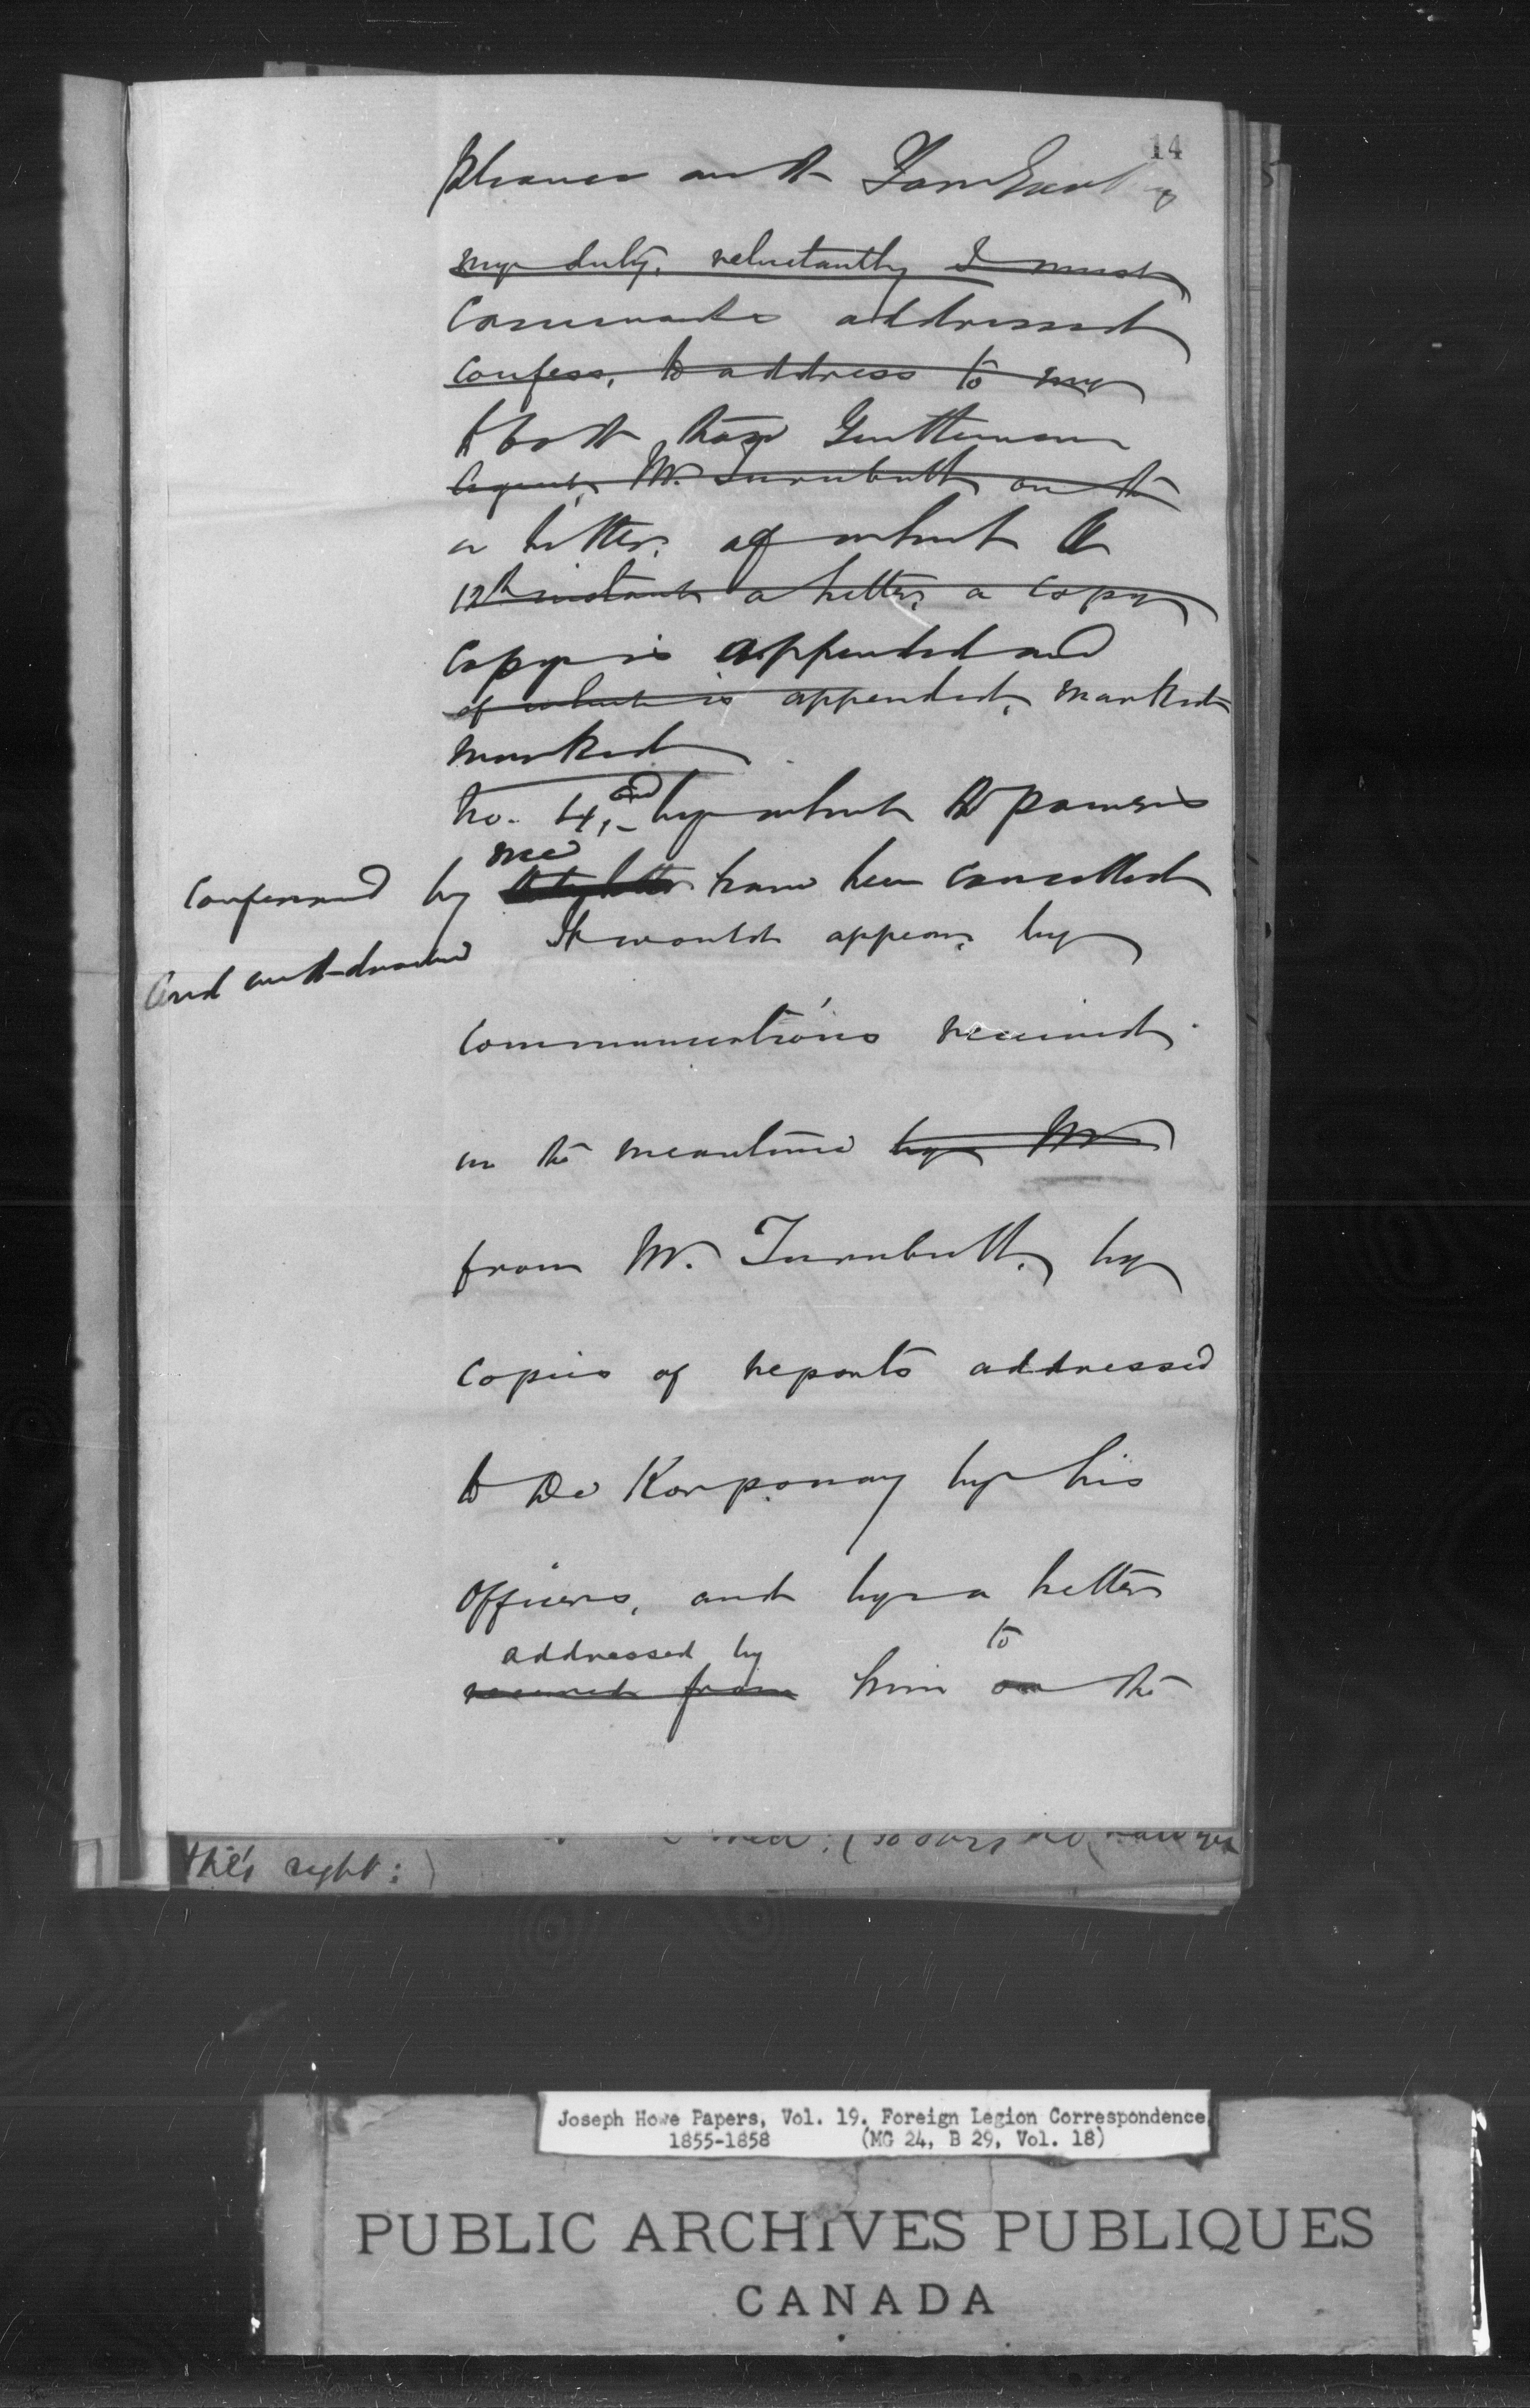 14
my duty, reluctantly I must
addressed
confess, to address to my
to both these Gentlemen
Agent, Mr. Turnbull, on the
a letter, of which a
12th instant a letter, a copy
copy is appended and
of which is appended, marked
marked
No. 4, and by which the powers
conferred by me have been cancelled
and withdrawn
It would appear, by
communications received
in the meantime by Mr
from Mr. Turnbull, by
copies of reports addressed
to De Korponay by his
officers, and by a letter
addressed by to
received from him on the
this right:)
Joseph Howe Papers, Vol. 19. Foreign Legion Correspondence
1855-1858 (MG 24, B 29, Vol. 18)
PUBLIC ARCHIVES PUBLIQUES
CANADA